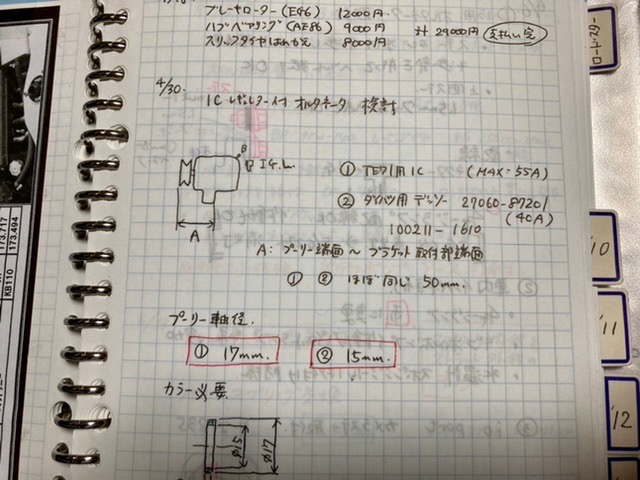 ブレーキローター (EG6) 12000円
ハブベアリング (AE86) 9000円 計 29000円 支払い完
スリップタイヤはめかえ 8000円
4/30.
ICレギュレター付 オルタネータ 検討
B
IG.L.
A
① TE71用 IC (MAX:55A)
② ダイハツ用 デンソー 27060-87201 (40A)
100211-1610
A: プーリー端面 ~ ブラケット取付部端面
① ② ほぼ同じ 50mm.
プーリー軸径.
① 17mm. ② 15mm.
カラー必要.
φ15 φ17
173.717
173.494
KB110
'10
'11
'12